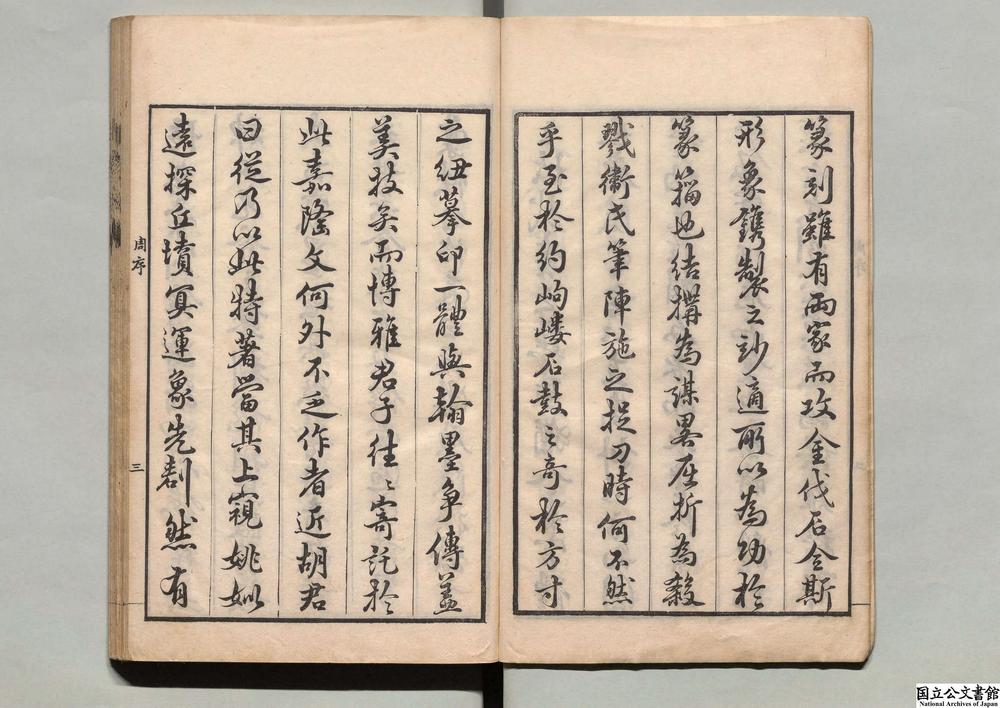 篆刻雖有兩家而攻金伐石令斯
形象鐫製之妙適所以為功於
篆籀也結搆為謀畧屈折為殺
戮衛氏筆陣施之捉刀時何不然
乎至於約岣嶁石鼓之奇於方寸
之紐摹印一體與翰墨爭傳蓋
美技矣而博雅君子往〻寄託於
此嘉隆文何外不乏作者近胡君
曰從乃以此特著當其上窺姚姒
遠探丘墳冥運象先割然有
周序
三
国立公文書館
National Archives of Japan